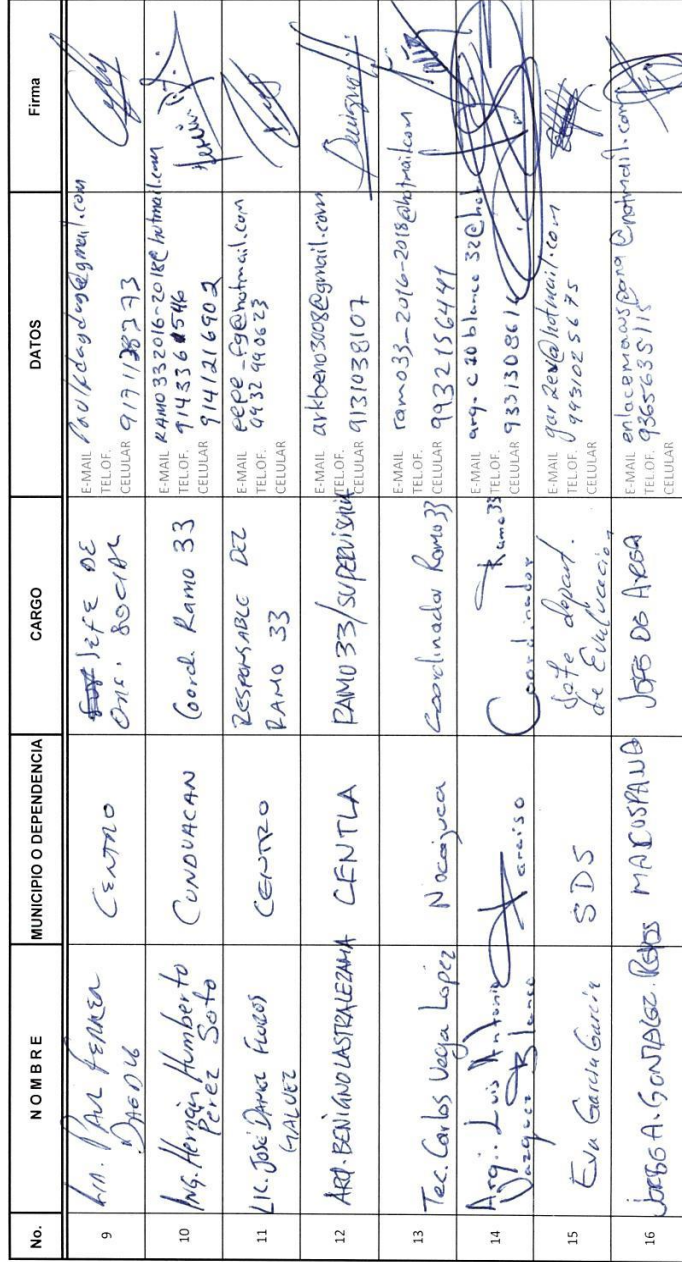 No. NOMBRE MUNICIPIO O DEPENDENCIA CARGO DATOS Firma
9 Lin. Paul Ferrer CENTRO JEFE DE E-MAIL
DAEDUG ORG. SOCIAL TEL.OF.
CELULAR 9171128373
10 ING. Hernán Humberto CUNDUACAN Coord. Ramo 33 E-MAIL RAMO332016-2018@hotmail.com
Perez Soto TEL.OF. 9143361546
CELULAR 9141216902
11 LIC. José Daniel Flores CENTRO RESPONSABLE DEL E-MAIL pepe_fg@hotmail.com
GALVEZ RAMO 33 TEL.OF. 9932 990623
CELULAR
12 ARQ. BENIGNO LASTRA LEZAMA CENTLA RAMO33/SUPERVISION E-MAIL arkbeno3008@gmail.com
TEL.OF.
CELULAR 9131038107
13 Tec. Carlos Vega López Nacajuca Coordinador Ramo 33 E-MAIL ramo33_2016-2018@hotmail.com
TEL.OF.
CELULAR 9932156441
14 Arq. Luis Antonio Paraiso Coordinador Ramo 33 E-MAIL
Vazquez Blanco TEL.OF.
CELULAR 9331308614
15 Eva García García SDS Jefe depart. E-MAIL
de Evaluación TEL.OF. 9931025675
CELULAR
16 JORGE A. GONZALEZ. REYES MACUSPANA JEFE DE AREA E-MAIL enlacemacuspana@hotmail.com
TEL.OF. 9365635115
CELULAR